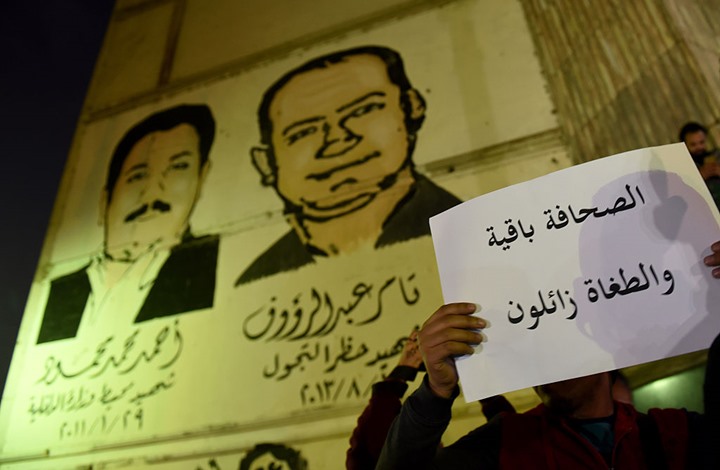 الصحافة باقية
والطغاة زائلون
تامر عبدالرؤوف
شهيد حظر التجول
٢٠١٣/٨/
أحمد محمد محمود
شهيد محيط وزارة الداخلية
٢٠١١/١/٢٩